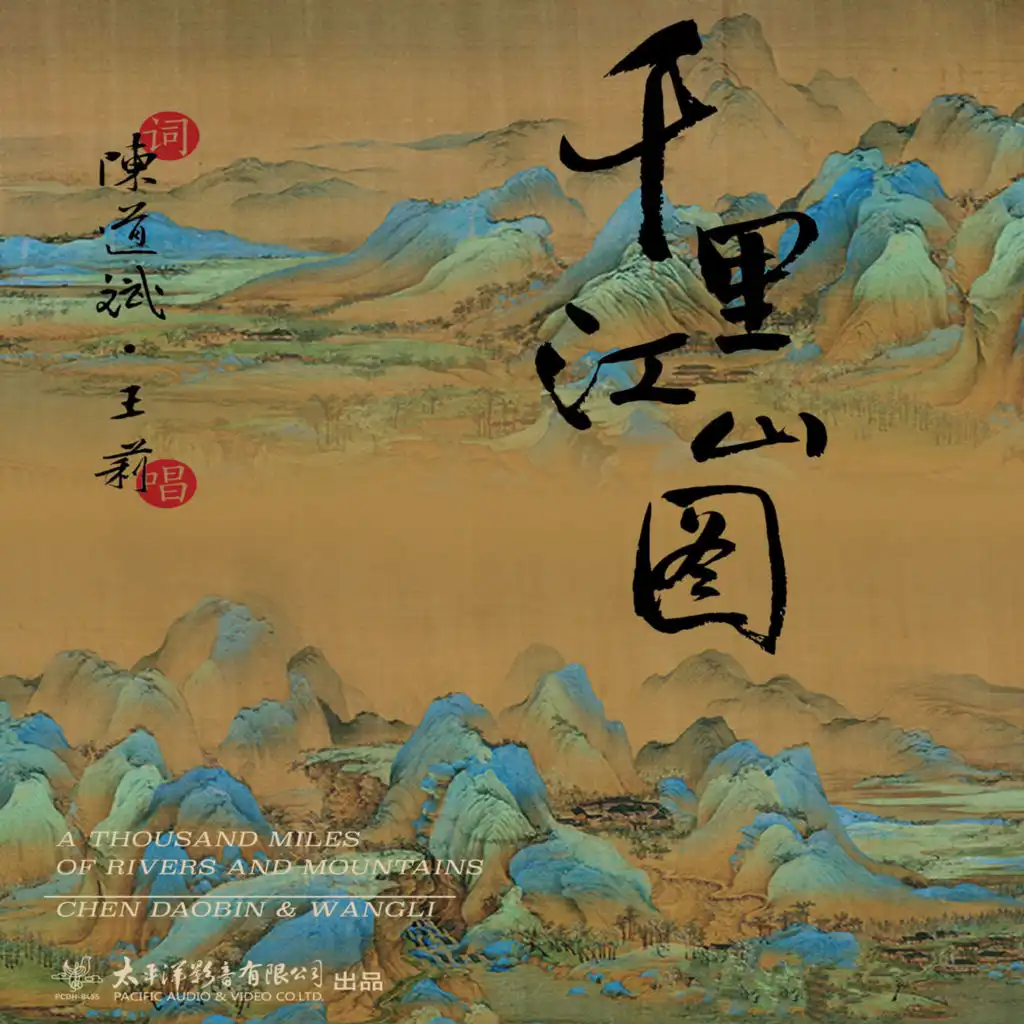 千里江山图
词
陳道斌·王莉
唱
A THOUSAND MILES
OF RIVERS AND MOUNTAINS
CHEN DAOBIN & WANGLI
太平洋影音有限公司 出品
PACIFIC AUDIO & VIDEO CO.LTD.
PCDH-8455